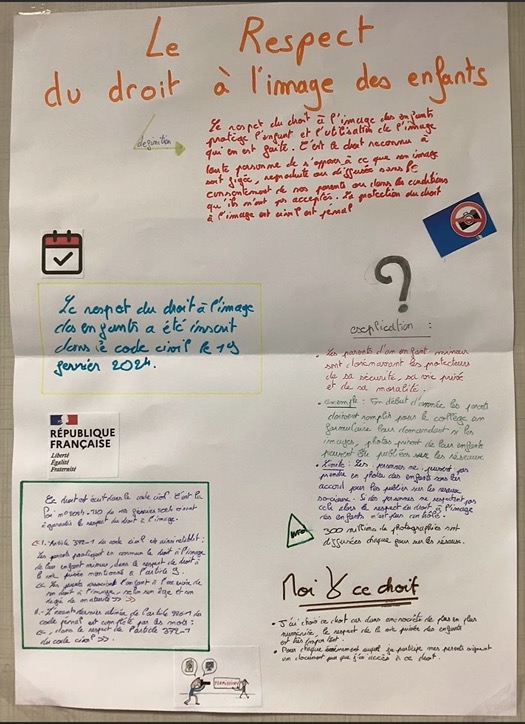 Le Respect
du droit à l'image des enfants
définition
Le respet du droit à l'image des enfants
protège l'enfant et l'utilisation de l'image
qui en est faite. C'est le droit reconnu à
toute personne de s'opposer à ce que son image
soit fixée, reproduite ou diffusée sans le
consentement de nos parents ou dans les conditions
qu'ils n'ont pas acceptés. La protection du droit
à l'image est civil est penal
?
Le respect du droit à l'image
des enfants a été inscrit
dans le code civil le 19
février 2024.
explication :
• Les parents d'un enfant mineur
sont dorénavant les protecteurs
de sa sécurité, sa vie privé
et de sa moralité.
• exemple : En début d'année les parents
doivent remplir pour le collège un
formulaire leur demandant si les
images, photos prises de leur enfants
peuvent être publiées sur les réseaux
• Limite : Les personnes ne peuvent pas
prendre en photo des enfants sans les
accord pour les publier sur les réseaux
sociaux. Si des personnes ne respectent pas
cela alors le respect du droit à l'image
des enfants n'est plus contrôlé.
info
300 millions de photographies sont
diffusées chaque jour sur les réseaux.
RÉPUBLIQUE
FRANÇAISE
Liberté
Égalité
Fraternité
Ce droit est écrit dans le code civil. C'est la
loi du 19 février 2024 visant
à garantir le respect du droit à l'image.
1. L'article 372-1 du code civil est ainsi rétabli :
Les parents protègent en commun le droit à l'image
de leur enfant mineur, dans le respect du droit à
la vie privée mentionné à l'article 9.
Les parents associent l'enfant à l'exercice de
son droit à l'image, selon son âge et son
degré de maturité >> >>
de l'article
code pénal est complété par les mots :
<<, dans le respect de l'article 372-1
du code civil >>.
PERMISSION
Moi & ce droit
• J'ai choisi ce droit car dans une société de plus en plus
numérisée, le respect de la vie privée des enfants
est très important.
• Pour chaque événement auquel je participe mes parents signent
un document pour que j'ai accès à ce droit.